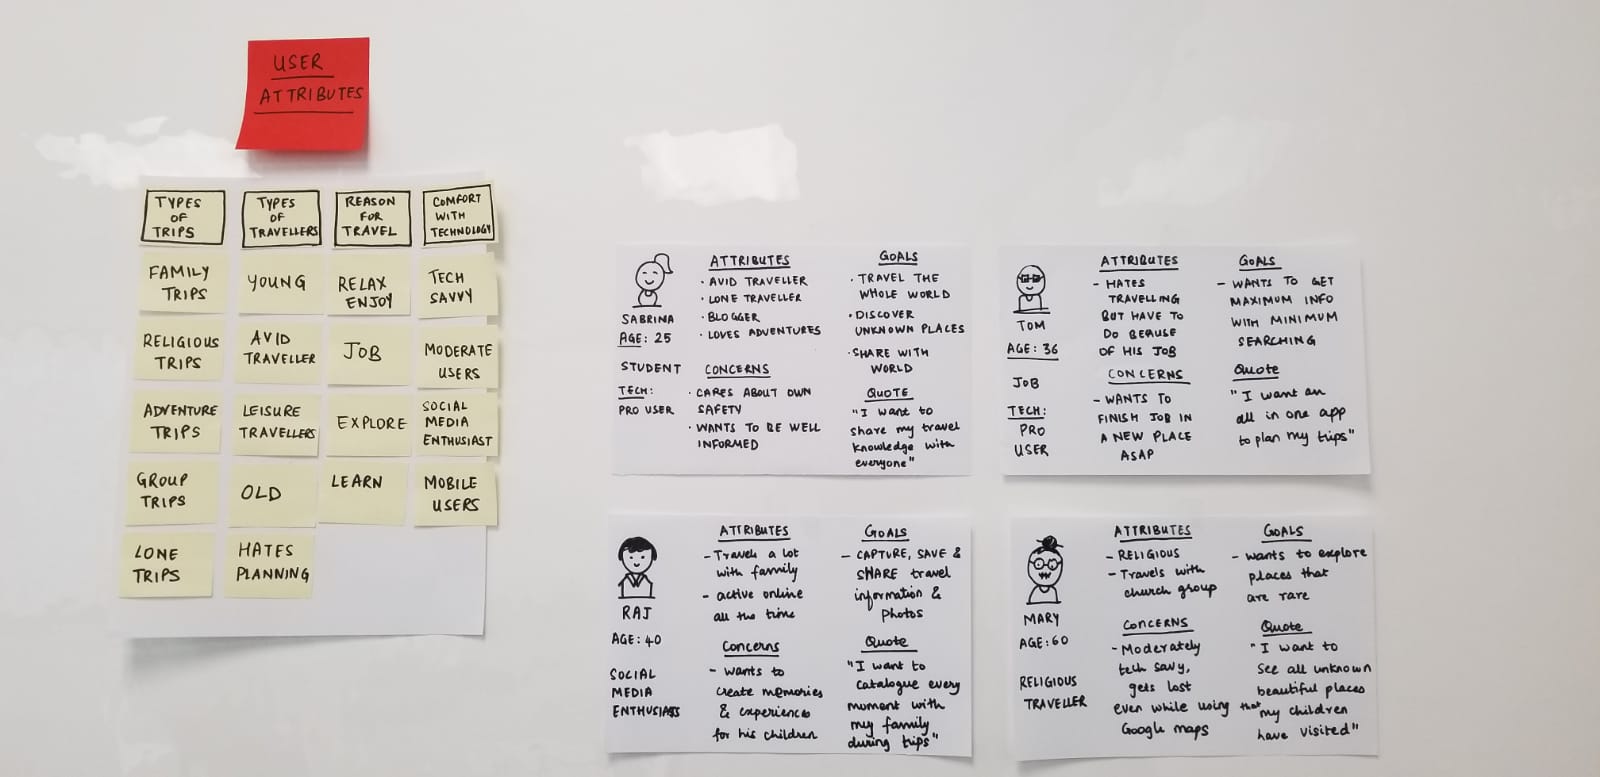 USER
ATTRIBUTES
TYPES
OF
TRIPS
FAMILY
TRIPS
RELIGIOUS
TRIPS
ADVENTURE
TRIPS
GROUP
TRIPS
LONE
TRIPS
TYPES
OF
TRAVELLERS
YOUNG
AVID
TRAVELLER
LEISURE
TRAVELLERS
OLD
HATES
PLANNING
REASON
FOR
TRAVEL
RELAX
ENJOY
JOB
EXPLORE
LEARN
COMFORT
WITH
TECHNOLOGY
TECH
SAVVY
MODERATE
USERS
SOCIAL
MEDIA
ENTHUSIAST
MOBILE
USERS
SABRINA
AGE: 25
STUDENT
TECH:
PRO USER
ATTRIBUTES
· AVID TRAVELLER
· LONE TRAVELLER
· BLOGGER
· LOVES ADVENTURES
CONCERNS
· CARES ABOUT OWN
SAFETY
· WANTS TO BE WELL
INFORMED
GOALS
· TRAVEL THE
WHOLE WORLD
· DISCOVER
UNKNOWN PLACES
· SHARE WITH
WORLD
QUOTE
"I want to
share my travel
knowledge with
everyone"
TOM
AGE: 36
JOB
TECH:
PRO
USER
ATTRIBUTES
- HATES
TRAVELLING
BUT HAVE TO
DO BEAUSE
OF HIS JOB
CONCERNS
- WANTS TO
FINISH JOB IN
A NEW PLACE
ASAP
GOALS
- WANTS TO GET
MAXIMUM INFO
WITH MINIMUM
SEARCHING
Quote
"I want an
all in one app
to plan my trips"
RAJ
AGE: 40
SOCIAL
MEDIA
ENTHUSIAST
ATTRIBUTES
- Travels a lot
with family
- active online
all the time
Concerns
- wants to
create memories
& experiences
for his children
GOALS
- CAPTURE, SAVE &
SHARE travel
information &
Photos
Quote
"I want to
Catalogue every
moment with
my family
during trips"
MARY
AGE: 60
RELIGIOUS
TRAVELLER
ATTRIBUTES
- RELIGIOUS
- Travels with
church group
CONCERNS
- Moderately
tech savy,
gets lost
even while using
Google maps
GOALS
- wants to explore
places that
are rare
Quote
"I want to
see all unknown
beautiful places
that my children
have visited"